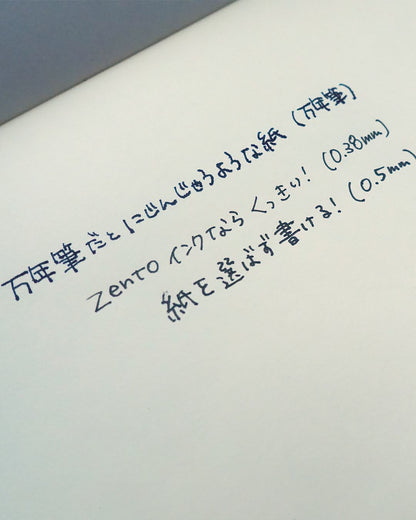 万年筆だとにじんじゃうような紙(万年筆)
Zentoインクならくっきり!(0.38mm)
紙を選ばず書ける!(0.5mm)